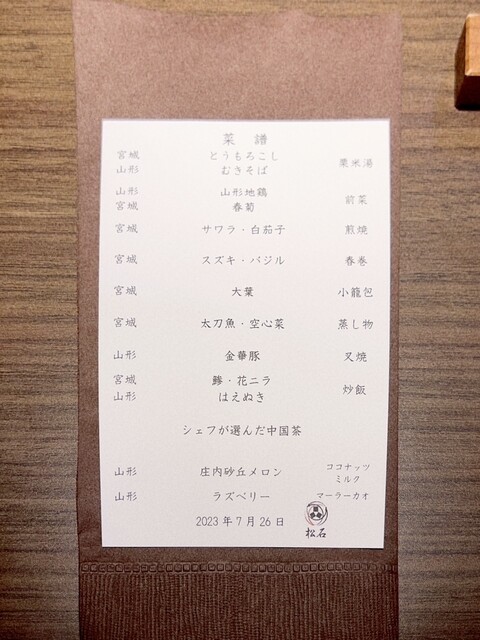 菜 譜
宮城 とうもろこし 粟米湯
山形 むきそば
山形 山形地鶏 前菜
宮城 春菊
宮城 サワラ・白茄子 煎焼
宮城 スズキ・バジル 春巻
宮城 大葉 小籠包
宮城 太刀魚・空心菜 蒸し物
山形 金華豚 叉焼
宮城 鯵・花ニラ 炒飯
山形 はえぬき
シェフが選んだ中国茶
山形 庄内砂丘メロン ココナッツ
ミルク
山形 ラズベリー マーラーカオ
2023年7月26日
松石